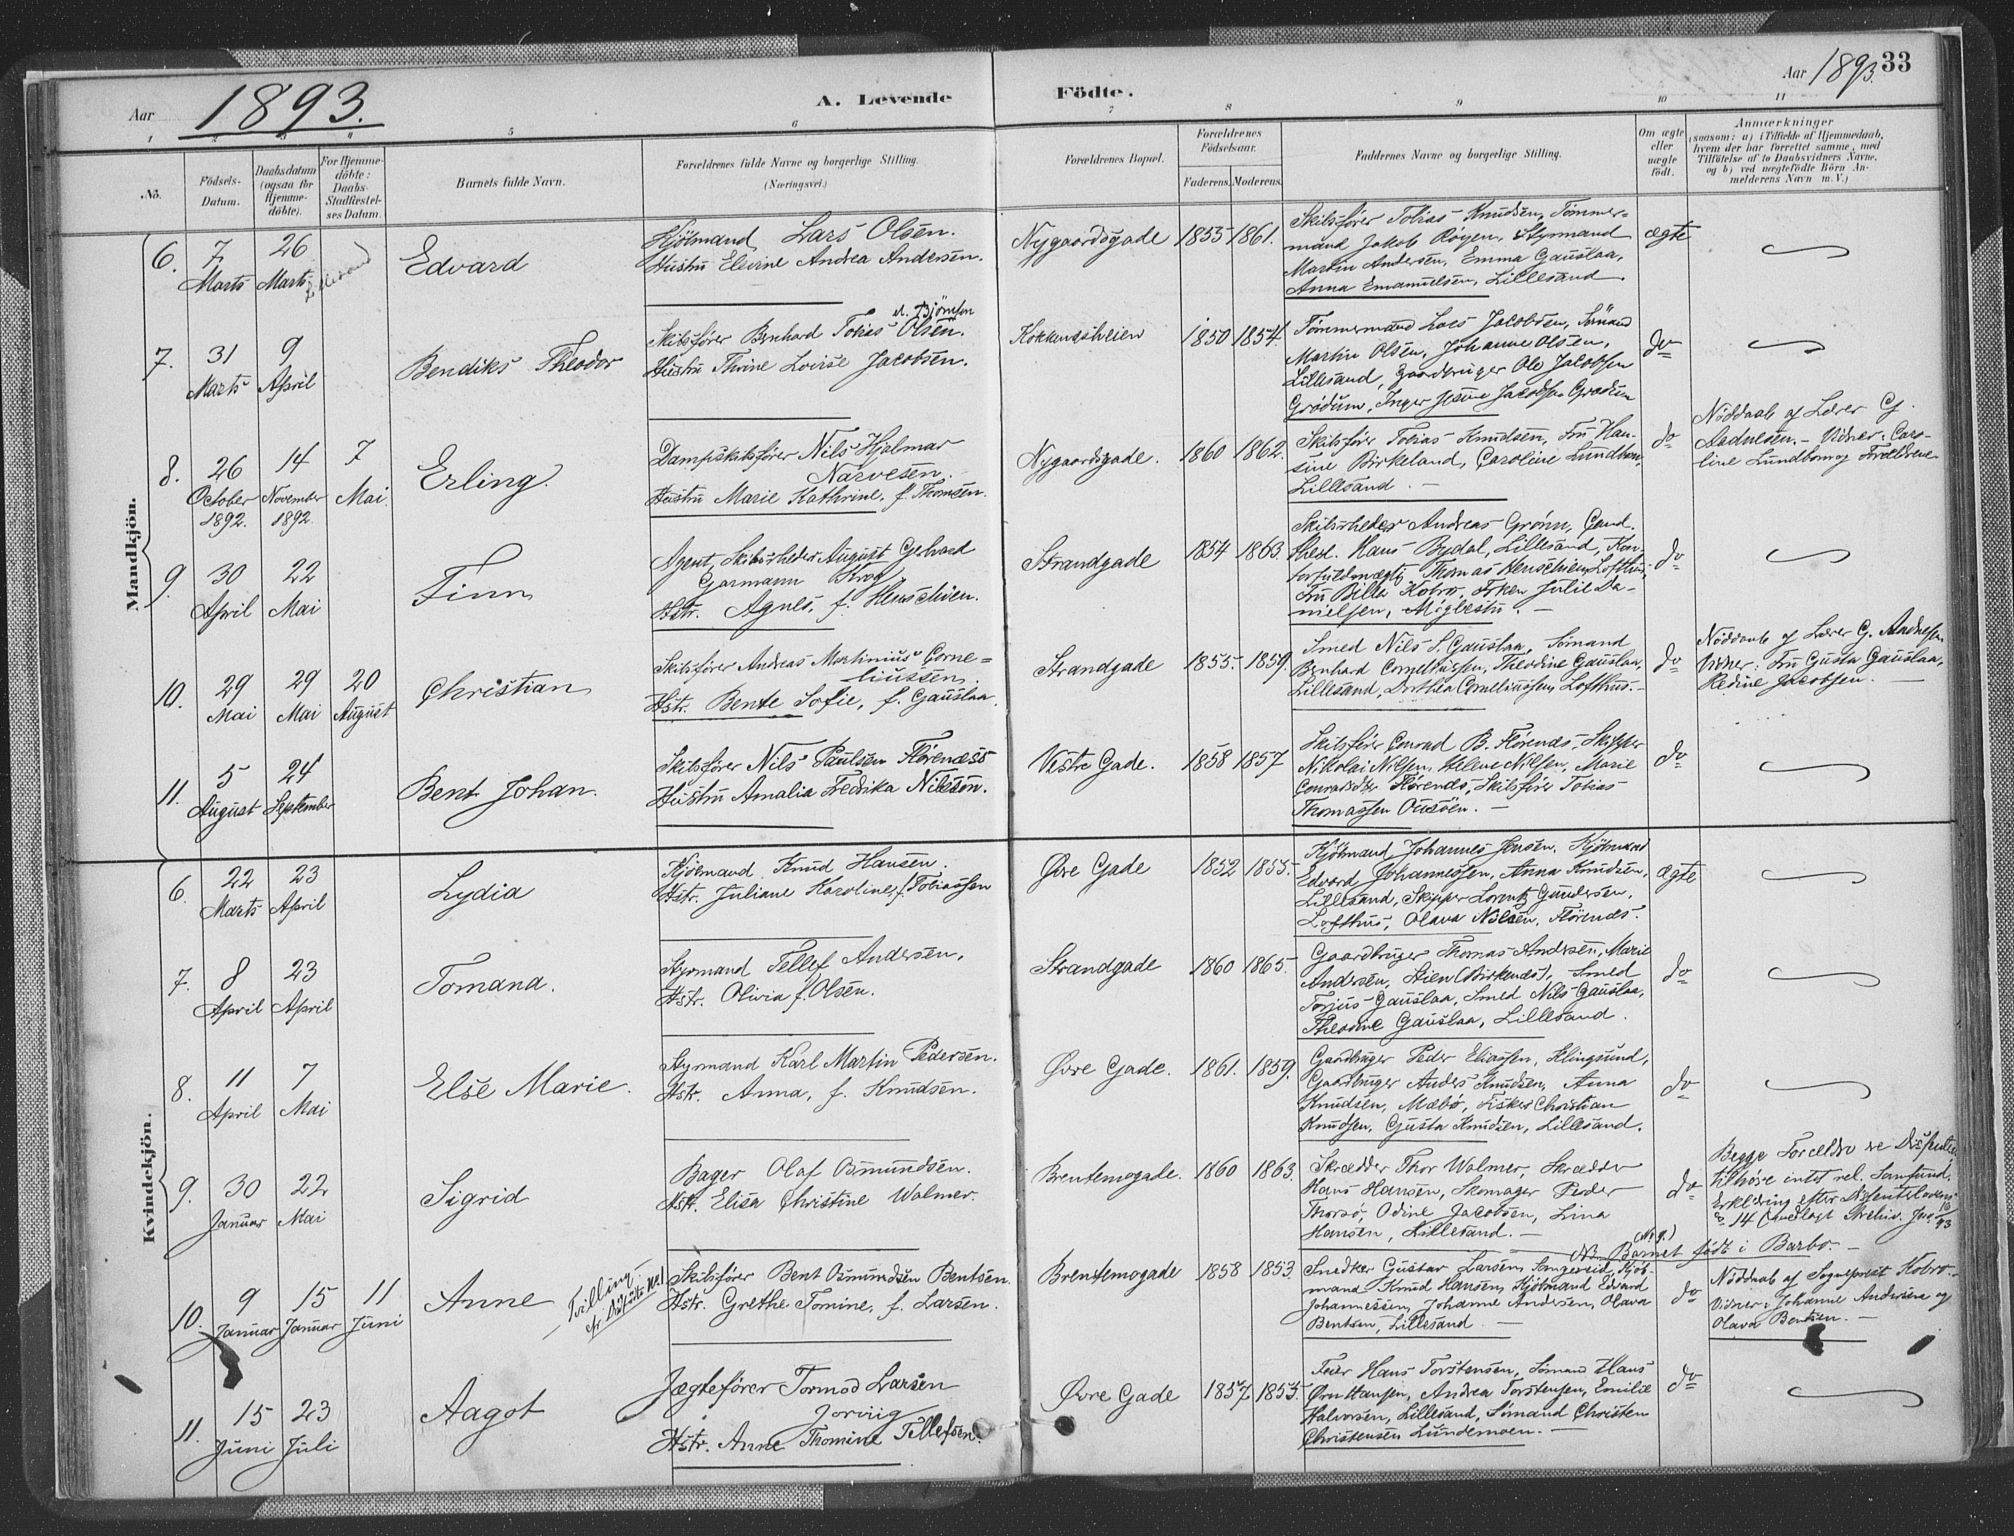 Aar 1893. A. Levende Födte. Aar 1893. 33
1 2 3 4 5 6 7 8 9 10 11
No.
Födsels-Datum.
Daabsdatum (ogsaa for Hjemme-döbte).
For Hjemme-döbte: Daabs-Stadfæstel-ses Datum.
Barnets fulde Navn.
Forældrenes fulde Navne og borgerlige Stilling. (Næringsvei.)
Forældrenes Bopæl.
Forældrenes Födselsaar.
Faderens. Moderens.
Faddernes Navne og borgerlige Stilling.
Om ægte eller uægte födt.
Anmærkninger
(saasom: a) i Tilfælde af Hjemmedaab,
hvem der har forrettet samme, med
Tilföielse af to Daabsvidners Navne,
og b) ved uægtefödte Börn An-
melderens Navn m. V.)
Mandkjön.
6. 7 Marts 26 Marts
Edvard
Kjölmand Lars Olsen.
Hustru Elevine Andrea Andersen.
Nygaardsgade 1855 1861.
Skibsfører Tobias Knudsen, Tømmer-
mand Jakob Røyen, Styrmand
Martin Andersen, Emma Gauslaa,
Anna Emanuelsen, Lillesand.
ægte
7. 31 Marts 9 April
Bendiks Theodor
Skibsfører Bernhard Tobias Olsen.
Hustru Thrine Lovise Jacobsen.
Kokkenesheien 1850 1854.
Tømmermand Lars Jacobsen, Sømand
Martin Olsen, Johanne Olsen,
Lillesand, Gaardbruger Ole Jacobsen
Grødum, Inger Jesine Jacobsen Grødum
do
8. 26 October 1892. 14 November 1892. 7 Mai.
Erling.
Dampskibsfører Nils Hjalmar
Narvesen.
Hustru Marie Kathrine, f. Thomsen.
Nygaardsgade. 1860 1862.
Skibsfører Tobias Knudsen, Fru Han-
sine Birkeland, Caroline Lundbom,
Lillesand. —
do
Nöddaab af Lærer G.
Aadnesen. — Vidner: Caro-
line Lundbom og Forældrene
9. 30 April 22 Mai
Finn
Agent, Skibsrheder August Gerhard
Garmann Krog
Hstr. Agnes, f. Henschien.
Strandgade 1854 1863.
Skibsrheder Andreas Grønn, Cand.
theol. Hans Bydal, Lillesand, Kon-
torfuldmægtig Thomas Henschien, Lofthus,
Fru Billa Kobro, Frken Julie Da-
nielsen, Møglestu. —
do
10. 29 Mai 29 Mai 20 August
Christian
Skibsfører Andreas Martinius Corne-
liussen.
Hstr. Bente Sofie, f. Gauslaa.
Strandgade 1855. 1859.
Smed Nils S. Gauslaa, Sømand
Bernhard Corneliussen, Theodine Gauslaa,
Lillesand, Dorthea Corneliussen, Lofthus. —
do
Nöddaab af Lærer G. Aadnesen
Vidner: Fru Gusta Gauslaa,
Redine Jacobsen. —
11. 5 August 24 September
Bent Johan.
Skibsfører Nils Paulsen Flørenæss
Hustru Amalia Fredrika Nilsson.
Vestre Gade. 1858 1857
Skibsfører Conrad B. Flørenæs, Skipper
Nikolai Nilsen, Helene Nilsen, Marie
Conradsdtr Flørenæs, Skibsfører Tobias
Thomassen Ousöen. —
do
Kvindekjön.
6. 22 Marts 23 April
Lydia
Kjölmand Knud Hansen.
Hstr. Juliane Karoline, f. Tobiassen
Øvre Gade 1852 1855.
Kjölmand Johannes Jensen, Kjölmand
Edvard Johannessen, Anna Knudsen,
Lillesand, Skipper Lorentz Gundersen,
Lofthus, Olava Nilsen, Flørenæs.
Ægte
7. 8 April 23 April
Tomana.
Styrmand Tellef Andersen.
Hstr. Olivia f. Olsen.
Strandgade 1860 1865.
Gaardbruger Thomas Andersen, Marie
Andersen, Stien (Birkenæs), Smed
Torjus Gauslaa, Smed Nils Gauslaa,
Theodine Gauslaa, Lillesand.
do
8. 11 April 7 Mai
Else Marie.
Styrmand Karl Martin Pedersen.
Hstr. Anna, f. Knudsen.
Øvre Gade. 1861. 1859.
Gaardbruger Peder Eliassen, Klingsund,
Gaardbruger Anders Knudsen, Anna
Knudsen, Mæbø, Fisker Christian
Knudsen, Gusta Knudsen, Lillesand.
do
9. 30 Januar 22 Mai
Sigrid
Bager Olaf Osmundsen.
Hstr. Elisa Christine Walmer.
Brentemogade. 1860 1863.
Skrædder Thor Walmer, Skrædder
Hans Hansen, Skomager Peder
Thorsø, Odine Jacobsen, Lina
Hansen, Lillesand. —
do
Begge Forældre ere Dissentere
tilhöre intet rel. Samfund.
Erklæring efter Dissenterlovens
§ 14
(No. 9.)
NB. Barnet född i Barbo. —
10. 9 Januar 15 Januar 11 Juni
Anne
Tvilling
Skibsfører Bent Osmundsen Bentsen.
Hstr. Grethe Tomine, f. Larsen.
Brentemogade 1858 1853.
Snedker Gustav Larsen, Sangereid, Kjöb-
mand Knud Hansen, Kjölmand Edvard
Johannessen, Johanne Andersen, Olava
Bentsen, Lillesand. —
do
Nöddaab af Sogneprest Kobro.
Vidner: Johanne Andersen og
Olava Bentsen. —
11. 15 Juni 23 Juli
Aagot
Jægtefører Tormod Larsen
Jorvig
Hstr. Anne Thomine Tellefsen.
Øvre Gade 1857. 1855.
Feier Hans Torstensen, Sømand Hans
Ørn Hansen, Andrea Torstensen, Emilie
Halvorsen, Lillesand, Sømand Christen
Christensen Lundemoen. —
do